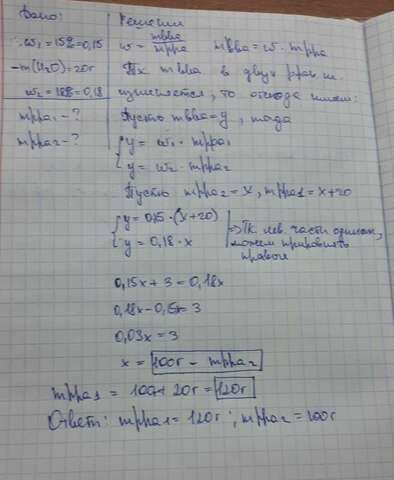 Дано:
ω₁ = 15% = 0,15
-m(H₂O) = 20г
ω₂ = 18% = 0,18
mрра₁ - ?
mрра₂ - ?
Решение
ω = mвва / mрра mвва = ω · mрра
Тк mвва в двух рра не
изменяется, то отсюда имеем:
Пусть mвва = y, тогда
{ y = ω₁ · mрра₁
{ y = ω₂ · mрра₂
Пусть mрра₂ = x, mрра₁ = x + 20
{ y = 0,15 · (x + 20)
{ y = 0,18 · x
=> Тк. лев. части одинак,
можем приравнять
правые
0,15x + 3 = 0,18x
0,18x - 0,15x = 3
0,03x = 3
x = 100г - mрра₂
mрра₁ = 100 + 20г = 120г
Ответ: mрра₁ = 120г; mрра₂ = 100г